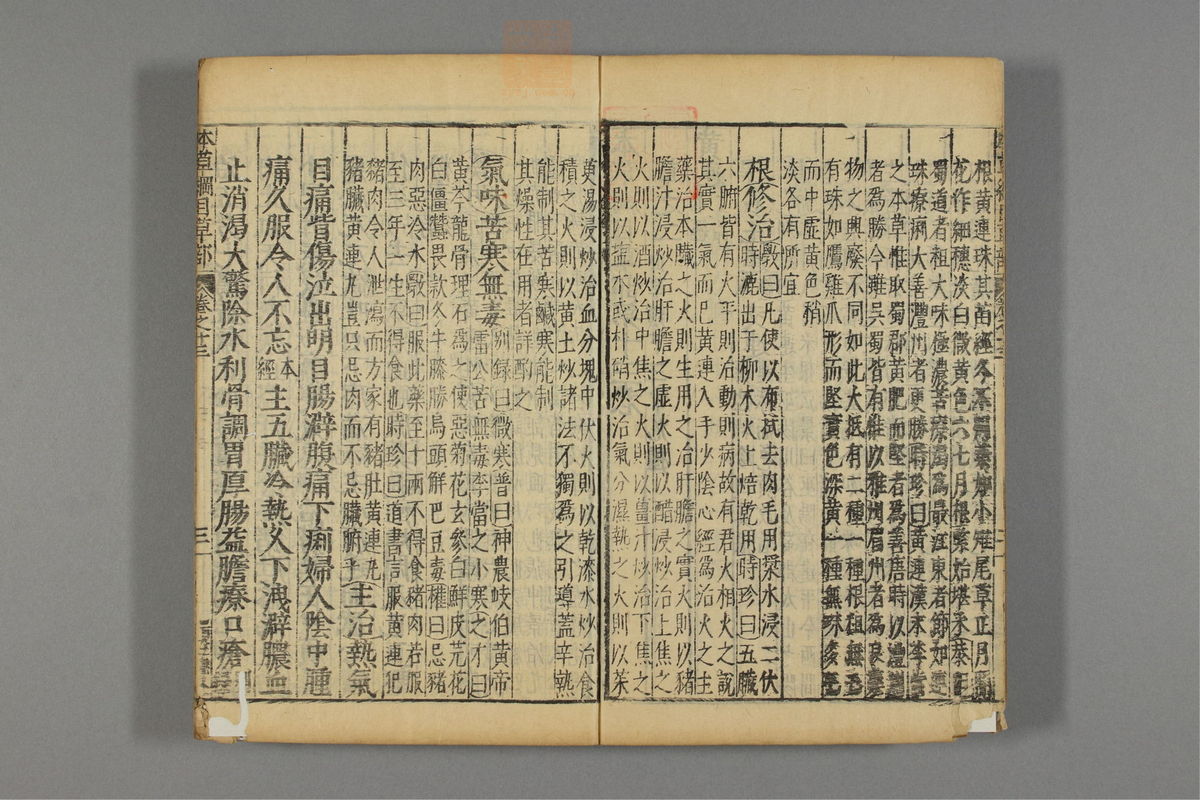 根黄連珠其苗經冬不凋葉如小雉尾草正月開
花作細穗淡白微黄色六七月根緊始堪采蘇頌曰
蜀道者粗大味極濃苦療渴為最江東者節如連
珠療痢大善澧州者更勝時珍曰黄連漢末李當
之本草惟取蜀郡黄肥而堅者為善唐時以澧州
者為勝今雖吳蜀皆有惟以雅州眉州者為良藥
物之興廢不同如此大抵有二種一種根粗無毛
有珠如鷹雞爪形而堅實色深黄一種無珠多毛
而中虚黄色稍
淡各有所宜
根修治
斆曰凡使以布拭去肉毛用漿水浸二伏
時漉出于柳木火上焙乾用時珍曰五臟
六腑皆有火平則治動則病故有君火相火之說
其實一氣而已黄連入手少陰心經為治火之主
藥治本臟之火則生用之治肝膽之實火則以豬
膽汁浸炒治肝膽之虚火則以醋浸炒治上焦之
火則以酒炒治中焦之火則以薑汁炒治下焦之
火則以鹽水或朴硝炒治氣分濕熱之火則以茱
萸湯浸炒治血分塊中伏火則以乾漆水炒治食
積之火則以黄土炒諸法不獨為之引導蓋辛熱
能制其苦寒鹹寒能制
其燥性在用者詳酌之
氣味苦寒無毒
别録曰微寒普曰神農岐伯黄帝
雷公苦無毒李當之小寒之才曰
黄芩龍骨理石為之使惡菊花玄參白鮮皮芫花
白僵蠶畏款冬牛膝勝烏頭解巴豆毒權曰忌豬
肉惡冷水斆曰服此藥至十兩不得食豬肉若服
至三年一生不得食也時珍曰道書言服黄連犯
豬肉令人泄瀉而方家有豬肚黄連丸
豬臟黄連丸豈只忌肉而不忌臟腑乎
主治熱氣
目痛眥傷泣出明目腸澼腹痛下痢婦人陰中腫
痛久服令人不忘本經主五臟冷熱久下洩澼膿血
止消渴大驚除水利骨調胃厚腸益膽療口瘡
本草綱目草部
卷之十三
三